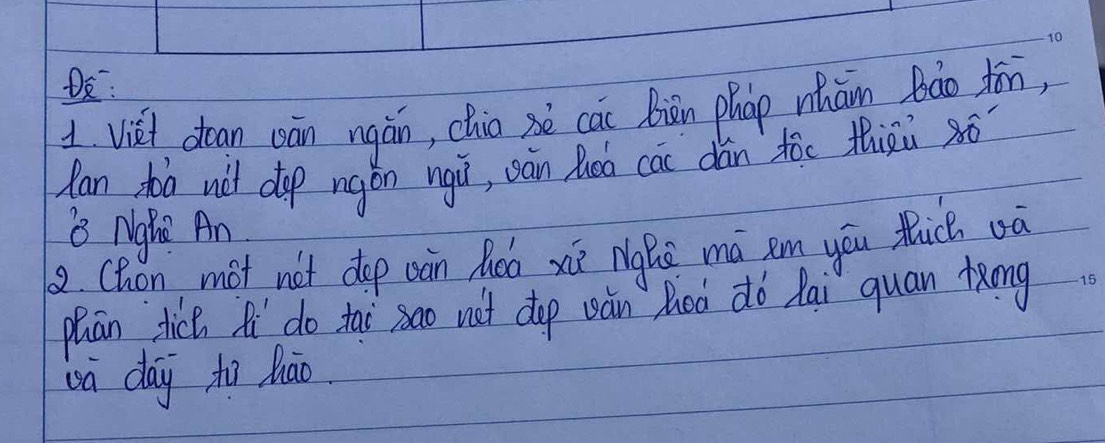 10
Đề:
1. Viết đoạn văn ngắn, chia sẻ các biện pháp nhằm bảo tồn,
lan toả nét đẹp ngôn ngữ, văn hoá các dân tộc thiểu số
ở Nghệ An.
2. Chọn một nét đẹp văn hoá xứ Nghệ mà em yêu thích và
phân tích lí do tại sao nét đẹp văn hoá đó lại quan trọng
15
và đầy tự hào.